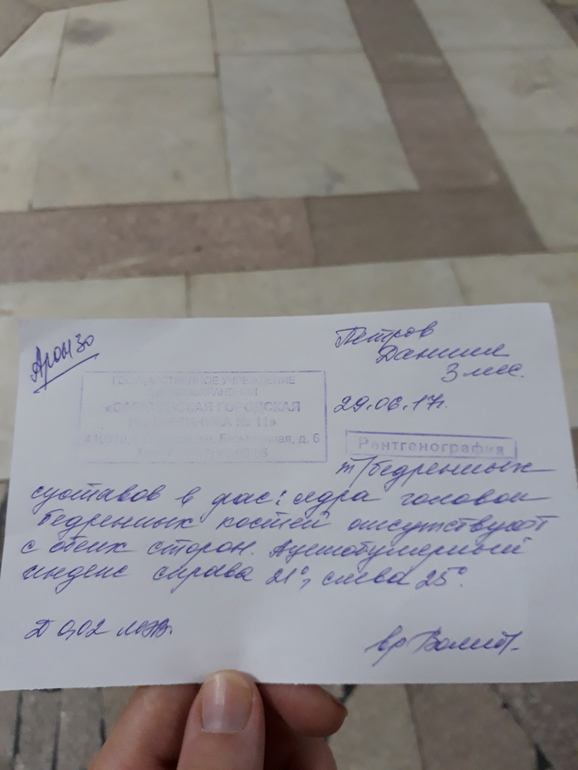 Аронзо
Петров
Даниил
3 мес.
29.06.17г.
ГОСУДАРСТВЕННОЕ УЧРЕЖДЕНИЕ
ЗДРАВООХРАНЕНИЯ
ГОРОДСКАЯ
№ 11»
д. 6
Рентгенография
т/бедренных
суставов в рас: ядра головок
бедренных костей отсутствуют
с обеих сторон. Ацетабулярный
индекс справа 21°, слева 25°.
Д 0,02 мЗв.
вр